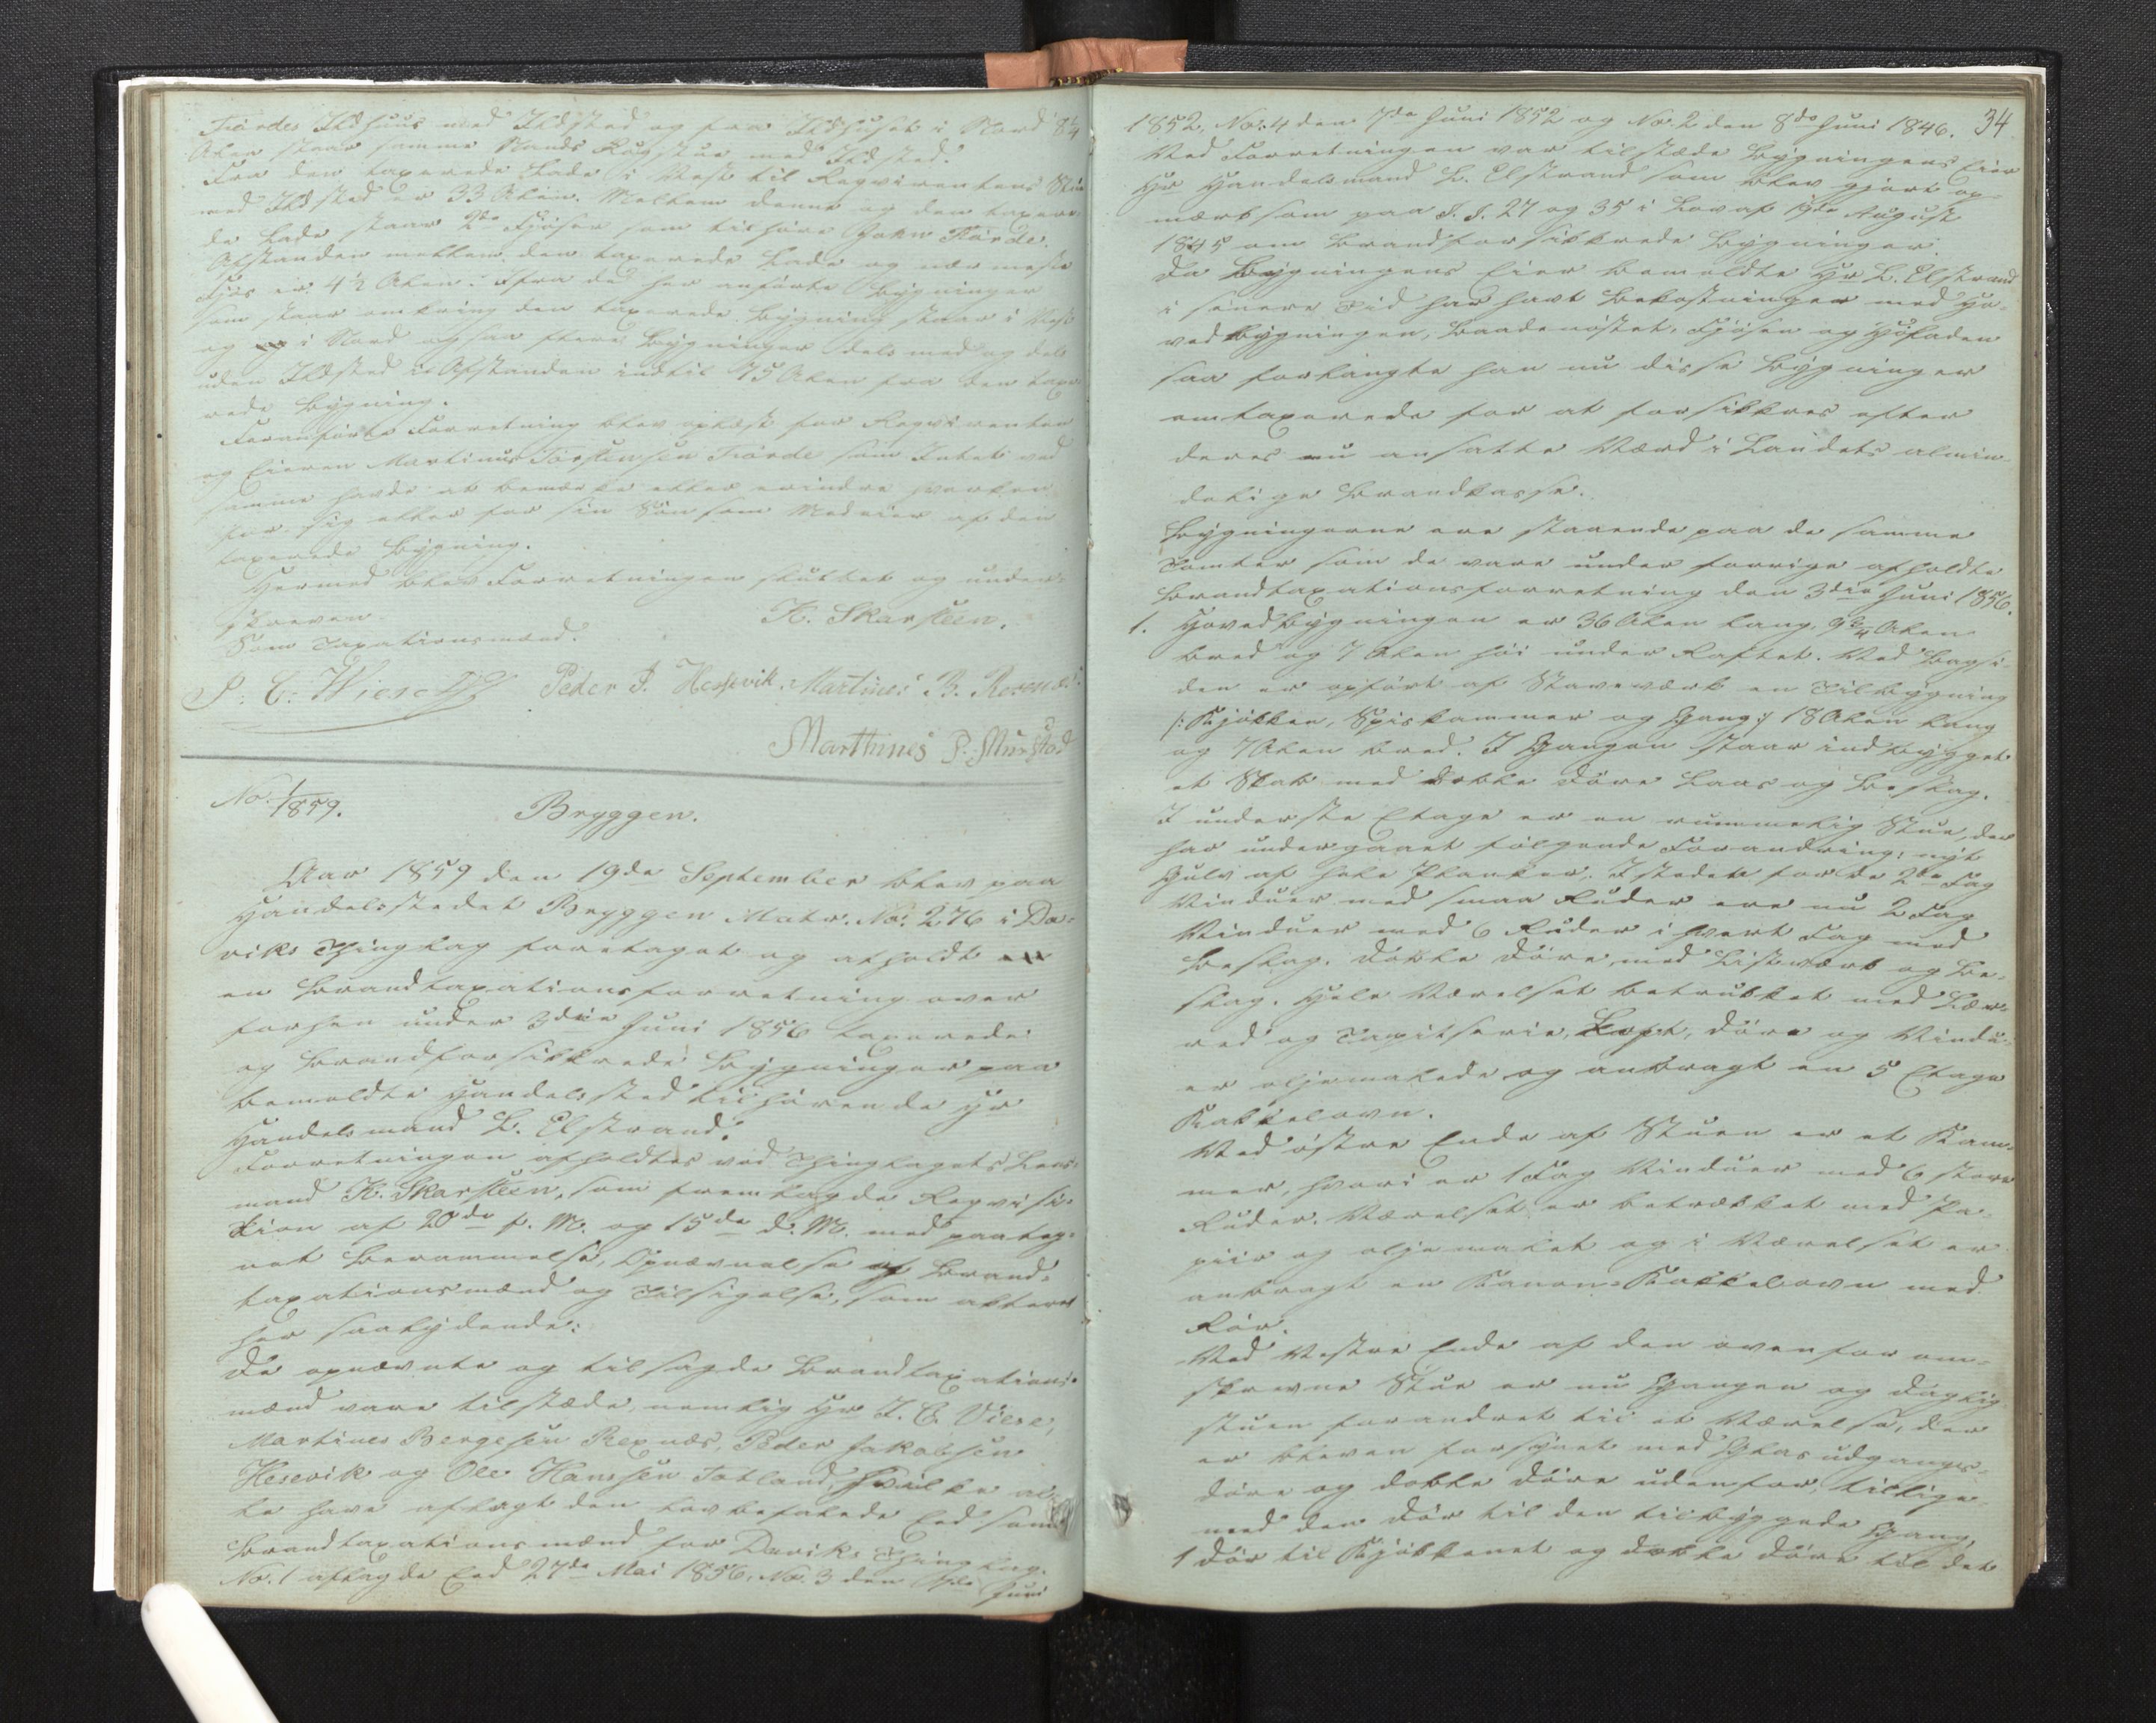 Førdes Ildhuus med Ildsted og fra Ildhuset i Nord 8 1/4
Alen staar samme Mands Røgstue med Ildsted.
Fra den taxerede Lade i Vest til Reqvirentens Stue
med Ildsted er 33 Alen. Mellem denne og den taxere-
de Lade staar 2de Fjøser som tilhøre John Førde.
Afstanden mellem den taxerede Lade og nærmeste
Fjøs er 4 1/2 Alen. Ifra de her anførte Bygninger
som staar omkring den taxerede Bygning staar i Vest
og i Nord ogsaa flere Bygninger dels med og dels
uden Ildsted i Afstanden indtil 75 Alen fra den taxe-
rede Bygning.
Foranførte Forretning blev oplæst for Reqvirenten
og Eieren Martinus Torstensen Førde som Intet ved
samme havde at bemærke eller erindre hverken
for sig eller for sin Søn som Medeier af den
taxerede Bygning.
Hermed blev Forretningen sluttet og under-
skreven.
K. Skarsteen.
Som Taxationsmænd.
J. C. Wiese Peder J. Hessevik. Martines B.
Marthines P. Murstad
No. 1/1859.
Bryggen.
Aar 1859 den 19de September blev paa
Handelsstedet Bryggen Matr. No. 276 i Da-
viks Thinglag foretaget og afholdt
en Brandtaxationsforretning over
forhen under 3die Juni 1856 taxerede
og brandforsikkrede Bygninger paa
bemeldte Handelssted tilhørende Hr
Handelsmand L. Elstrand.
Forretningen afholdtes ved Thinglagets Lens-
mand K. Skarsteen, som fremlagde Reqvisi-
tion af 20de f. M. og 15de d. M. med paateg-
net Berammelse, Opnævnelse af Brand-
taxationsmænd og Tilsigelse, som
her saalydende:
De opnævnte og tilsagde Brandtaxations-
mænd vare tilstæde, nemlig Hr J. C. Viese,
Martines Bergesen Rexnæs, Peder Jakobsen
Hesevik og Ole Hanssen Totland, hvilke al-
le have aflagt den lovbefalede Eed som
Brandtaxationsmænd for Daviks Thinglag.
No. 1 aflagde Eed 27de Mai 1856, No. 3 den 7de Juni
34
1852, No. 4 den 7de Juni 1852 og No. 2 den 8de Juni 1846.
Ved Forretningen var tilstæde Bygningens Eier
Hr Handelsmand L. Elstrand som blev gjort op-
mærksom paa §.§. 27 og 35 i Lov af 19de August
1845 om brandforsikkrede Bygninger.
Da Bygningens Eier bemeldte Hr L. Elstrand
i senere Tid har havt Bekostninger med Ho-
vedbygningen, Baadenøstet, Fjøsen og Høladen
saa forlangte han nu disse Bygninger
omtaxerede for at forsikkres efter
deres nu ansatte Værd i Landets almin-
delige Brandkasse.
Bygningerne ere staaende paa de samme
Tomter som de vare under forrige afholdte
Brandtaxationsforretning den 3die Juni 1856.
1. Hovedbygningen er 36 Alen lang, 9 3/4 Alen
bred og 7 Alen høi under Raftet. Ved Bagsi-
den er opført af Staveværk en Tilbygning
/: Kjøkken, Spiskammer og Gang :/ 18 Alen lang
og 7 Alen bred. I Gangen staar indbygget
et Skab med doble Døre Laas og Beslag.
I underste Etage er en rummelig Stue, der
har undergaaet følgende Forandring: nyt
Gulv af hele Planker. Istedet for de 2de Fag
Vinduer med smaa Ruder ere nu 2 Fag
Vinduer med 6 Ruder i hvert Fag med
Beslag. Doble Døre med Listværk og Be-
slag. Hele Værelset betrukket med Lær-
red og Tapitserie, Loft, Døre og Vindu-
er oljemalede og anbragt en 5 Etage
Kakkelovn.
Ved østre Ende af Stuen er et Kam-
mer, hvori er 1 Fag Vinduer med 6 store
Ruder. Værelset er betrækket med Pa-
piir og oljemalet og i Værelset er
anbragt en Kanon-Kakkelovn med
Rør.
Ved Vestre Ende af den ovenfor om-
skrevne Stue er nu Gangen og Daglig-
stuen forandret til et Værelse, der
er bleven forsynet med Glasudgangs-
døre og doble Døre udenfor, tillige
med den Dør til den tilbyggede Gang,
1 Dør til Kjøkkenet og doble Døre til det